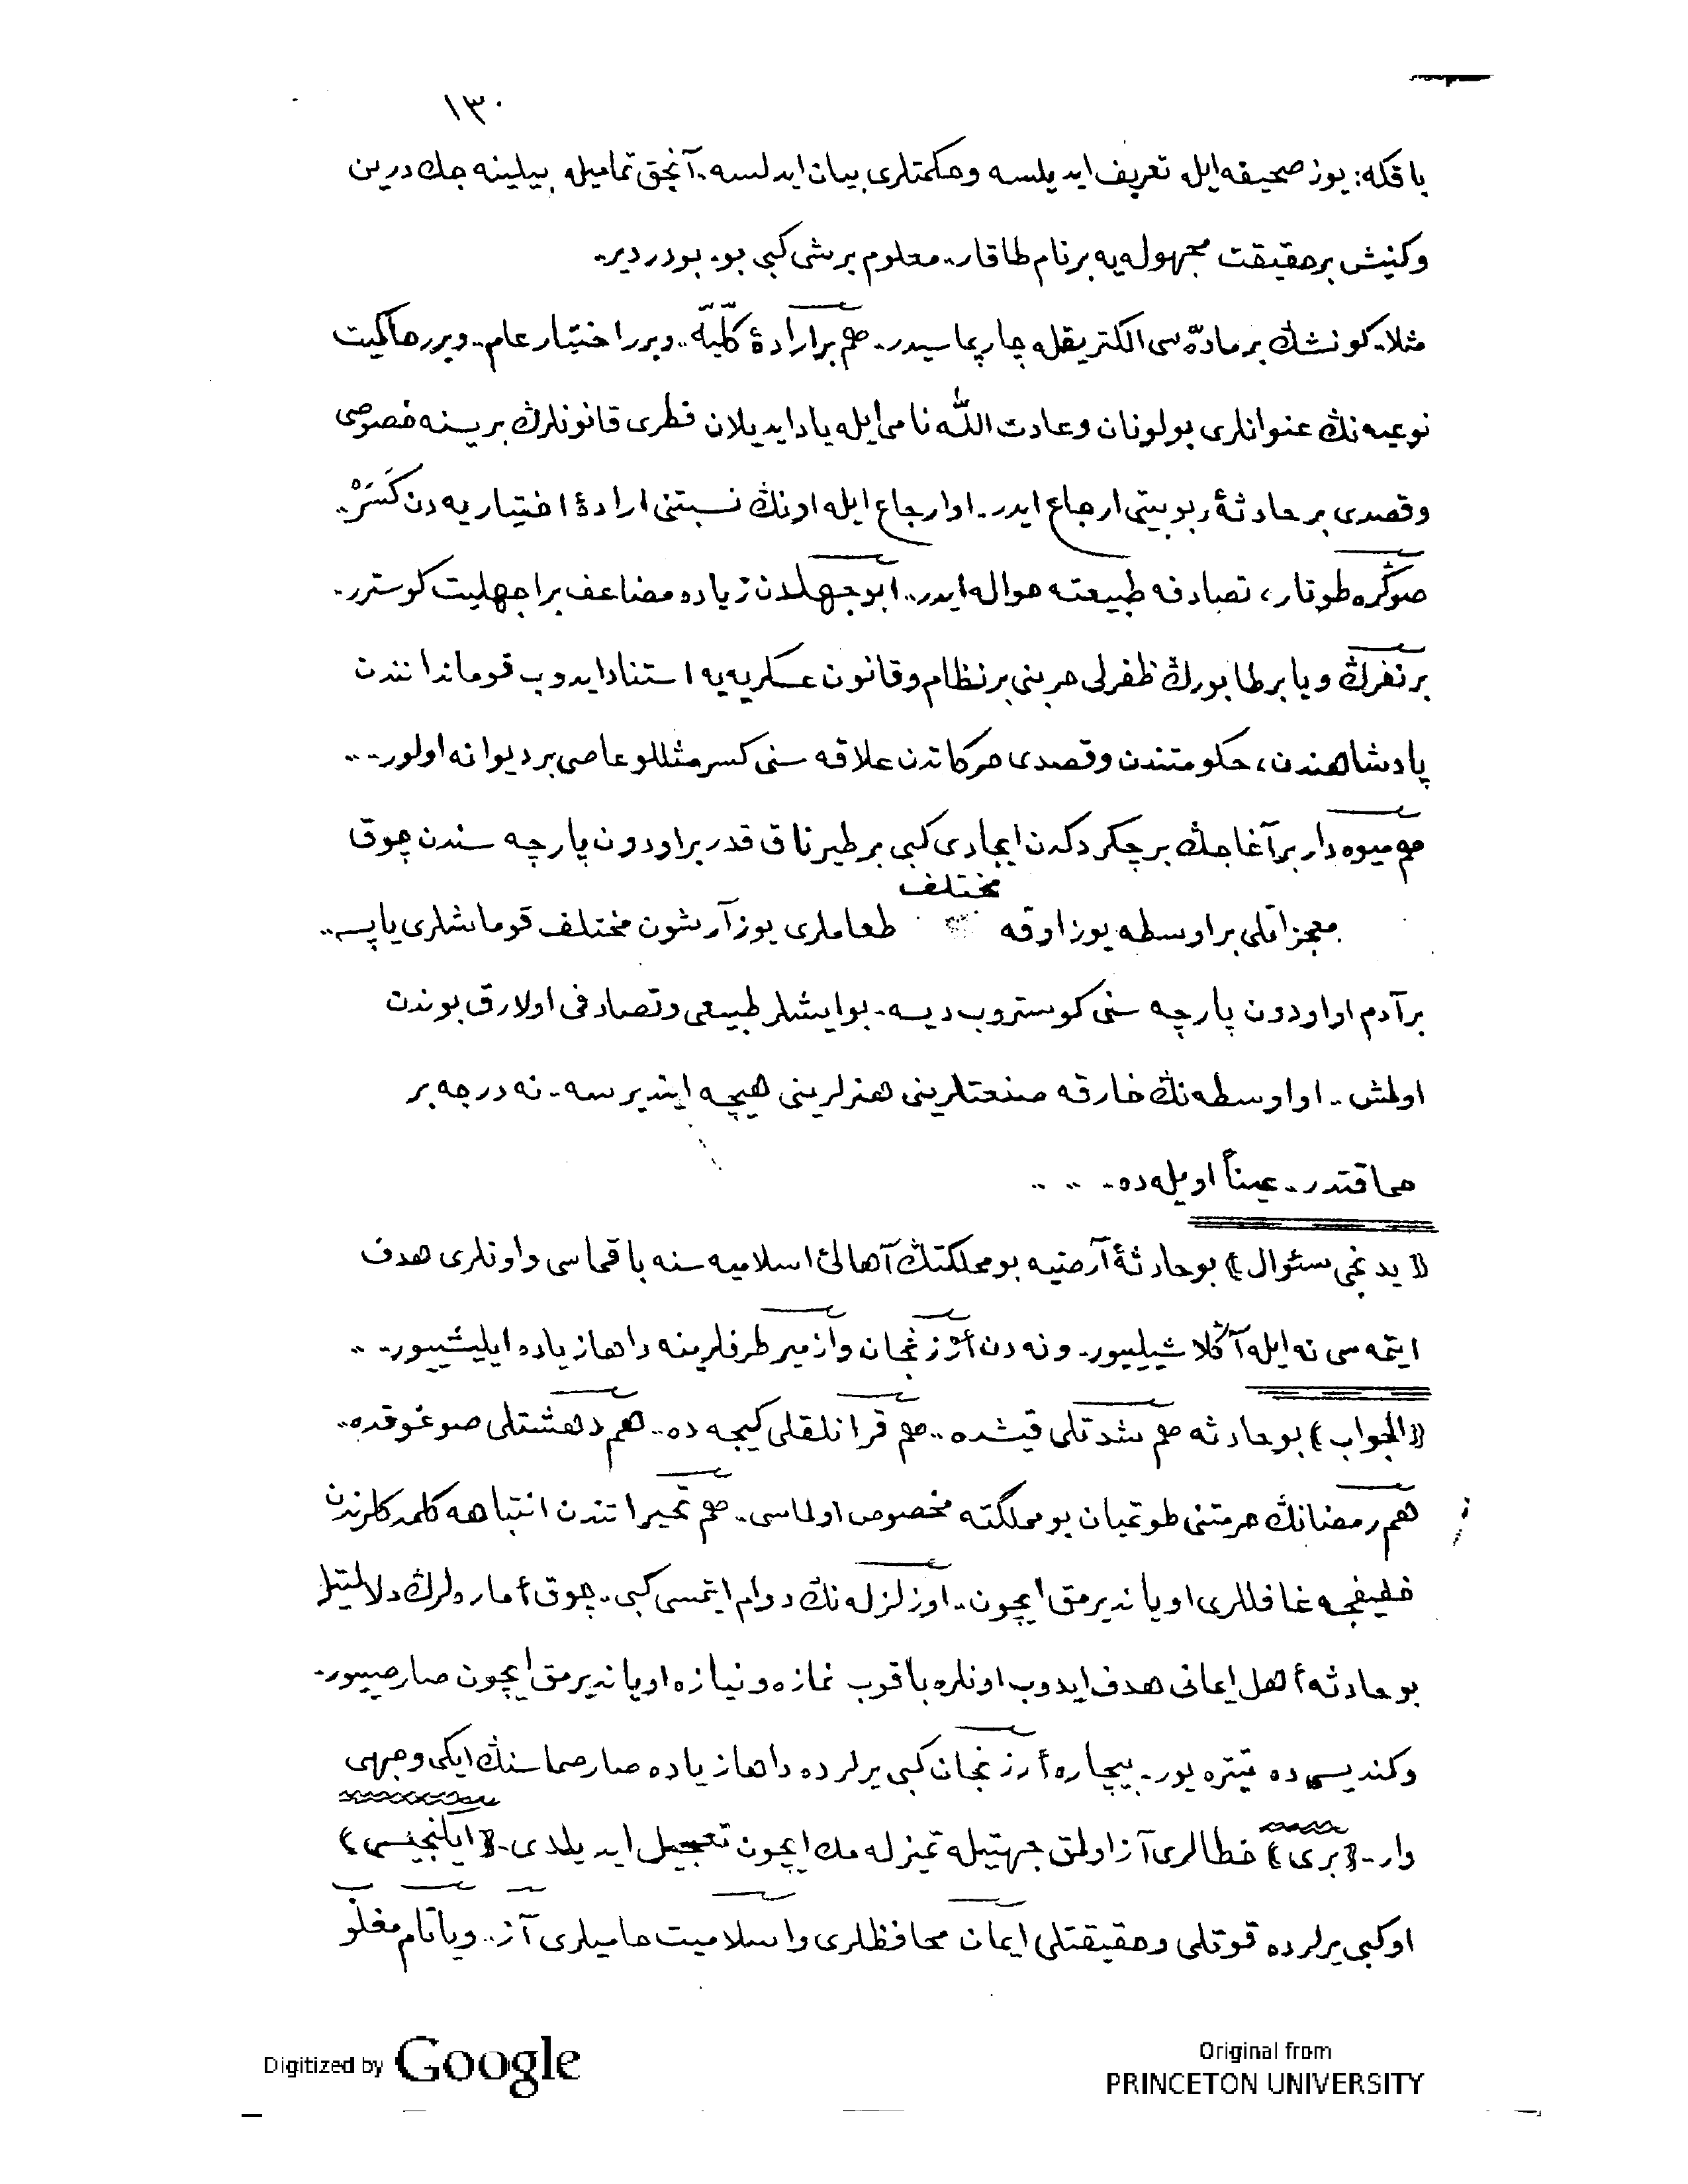 ١٣٠
باقكه: یوز صحیفه ایله تعریف ایدیلسه وحكمتلری بیان ایدلسه.. آنجق تمامیله بیلینه جك درین
وكنیش برحقیقت مجهوله یه برنام طاقار.. معلوم برشی كبی بو.. بودر دیر..
مثلا.. كونشڭ برمادّه سی الكتریقله چارپماسیدر.. هم برارادۀ كلّیّه.. وبرر اختیار عام.. وبرر حاكمیت
نوعیه نڭ عنوانلری بولونان وعادت اللّٰه نامی ایله یاد ایدیلان فطری قانونلرڭ بریسنه خصوصی
وقصدی برحادثۀ ربوبیتی ارجاع ایدر.. او ارجاع ایله اونڭ نسبتنی ارادۀ اختیاریه دن كَسَرْ..
صوڭره طوتار، تصادفه طبیعته حواله ایدر.. ابوجهلدن زیاده مضاعف براجهلیت كوسترر..
برنفرڭ ویا برطابورڭ ظفرلی حربنی برنظام وقانون عسكریه یه استناد ایدوب قوماندانندن
پادشاهندن، حكومتندن وقصدی حركاتدن علاقه سنی كسر مثللو عاصی بر دیوانه اولور.. ..
هم میوه دار برآغاجڭ برچكردكدن ایجادی كبی برطیرناق قدر براودون پارچه سندن چوق
معجزاتلی براوسطه یوز اوقه مختلف طعاملری یوز آرشون مختلف قوماشلری یاپسه..
برآدم او اودون پارچه سنی كوستروب دیسه.. بوایشلر طبیعی وتصادفی اولارق بوندن
اولمش.. او اوسطه نڭ خارقه صنعتلرینی هنرلرینی هیچه ایندیرسه.. نه درجه بر
حماقتدر.. عیناً اویله ده.. .. ..
﴿یدنجی سئوال﴾ بوحادثۀ آرضیه بومملكتڭ آهالئ اسلامیه سنه باقماسی واونلری هدف
ایتمه سی نه ایله آڭلاشیلییور.. ونه دن أرزنجان وازمیر طرفلرینه داها زیاده ایلیشییور.. ..
﴿الجواب﴾ بوحادثه هم شدتلی قیشده.. هم قرانلقلی كیجه ده.. هم دهشتلی صوغوقده..
هم رمضانڭ حرمتنی طوتمیان بومملكته مخصوص اولماسی.. هم تحیراتندن انتباهه كلمدكلرندن
خفیفجه غافللری اویاندیرمق ایچون.. اوزلزله نڭ دوام ایتمسی كبی.. چوق أماره لرڭ دلالتیله
بوحادثه أهل ایمانی هدف ایدوب اونلره باقوب نمازه ونیازه اویاندیرمق ایچون صارصییور..
وكندیسی ده تیتره یور.. بیچاره أرزنجان كبی یرلرده داها زیاده صارصماسنڭ ایكی وجهی
وار.. ﴿بری﴾ خطالری آز اولمق جهتیله تمیزله مك ایچون تعجیل ایدیلدی.. ﴿ایكنجیسی﴾
اوكبی یرلرده قوتلی وحقیقتلی ایمان محافظلری واسلامیت حامیلری آز.. ویا تام مغلو
Digitized by Google
Original from
PRINCETON UNIVERSITY